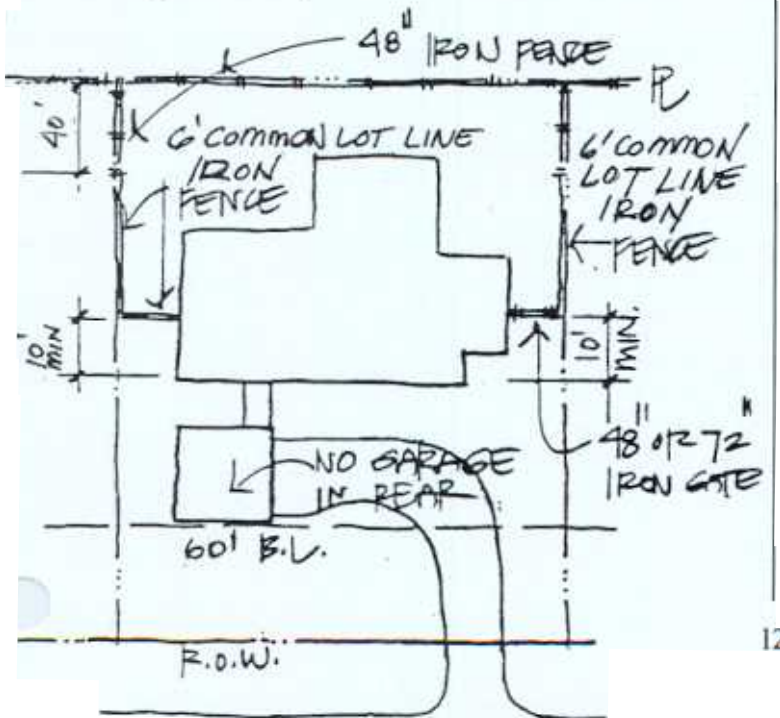 48" IRON FENCE
PL
40'
6' COMMON LOT LINE
IRON
FENCE
6' COMMON
LOT LINE
IRON
FENCE
10'
MIN
10'
MIN.
48" OR 72"
IRON GATE
NO GARAGE
IN REAR
60' B.L.
R.O.W.
12